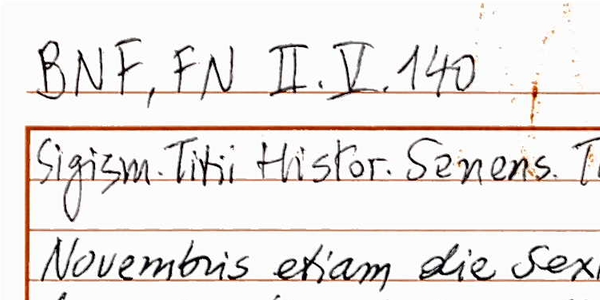 BNF, FN II.V.140
Sigism. Titii Histor. Senens.
Novembris etiam die